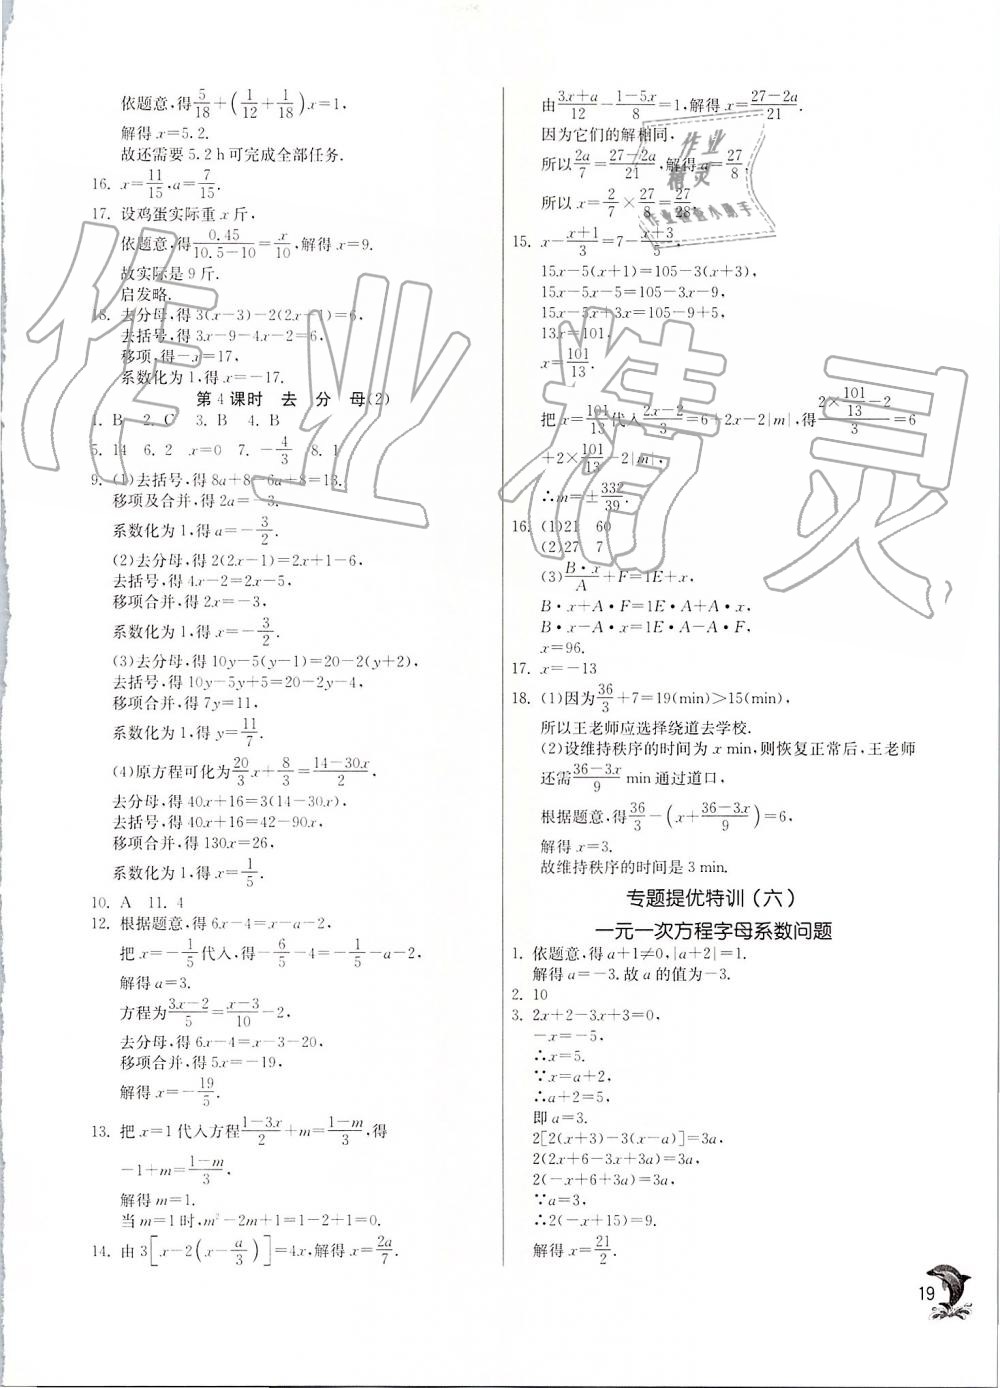 依题意,得5/18+(1/12+1/18)x=1,
解得 x=5.2.
故还需要 5.2 h 可完成全部任务.
16. x=11/15,a=7/15.
17. 设鸡蛋实际重 x 斤,
依题意,得0.45/(10.5-10)=x/10,解得 x=9.
故实际是 9 斤.
启发略.
18. 去分母,得 3(x-3)-2(2x+1)=6,
去括号,得 3x-9-4x-2=6,
移项,得-x=17,
系数化为 1,得 x=-17.
第 4 课时 去 分 母(2)
1. B 2. C 3. B 4. B
5. 14 6. 2 x=0 7. -4/3 8. 1
9. (1)去括号,得 8a+8-6a+8=13.
移项及合并,得 2a=-3.
系数化为 1,得 a=-3/2.
(2)去分母,得 2(2x-1)=2x+1-6,
去括号,得 4x-2=2x-5,
移项合并,得 2x=-3,
系数化为 1,得 x=-3/2.
(3)去分母,得 10y-5(y-1)=20-2(y+2),
去括号,得 10y-5y+5=20-2y-4,
移项合并,得 7y=11,
系数化为 1,得 y=11/7.
(4)原方程可化为20/3x+8/3=(14-30x)/2.
去分母,得 40x+16=3(14-30x),
去括号,得 40x+16=42-90x,
移项合并,得 130x=26,
系数化为 1,得 x=1/5.
10. A 11. 4
12. 根据题意,得 6x-4=x-a-2,
把 x=-1/5代入,得-6/5-4=-1/5-a-2,
解得 a=3.
方程为(3x-2)/5=(x-3)/10-2,
去分母,得 6x-4=x-3-20,
移项合并,得 5x=-19,
解得 x=-19/5.
13. 把 x=1 代入方程(1-3x)/2+m=(1-m)/3,得
-1+m=(1-m)/3,
解得 m=1.
当 m=1 时,m²-2m+1=1-2+1=0.
14. 由 3[x-2(x-a/3)]=4x,解得 x=2a/7.
由(3x+a)/12-(1-5x)/8=1,解得 x=(27-2a)/21.
因为它们的解相同,
所以2a/7=(27-2a)/21,解得 a=27/8,
所以 x=2/7×27/8=27/28.
15. x-(x+1)/3=7-(x+3)/5,
15x-5(x+1)=105-3(x+3),
15x-5x-5=105-3x-9,
15x-5x+3x=105-9+5,
13x=101,
x=101/13.
把 x=101/13代入(2x-2)/3=6+2x-2|m|,得(2×101/13-2)/3=6
+2×101/13-2|m|,
∴m=±332/39.
16. (1)21 60
(2)27 7
(3)B·x/A+F=1E+x,
B·x+A·F=1E·A+A·x,
B·x-A·x=1E·A-A·F,
x=96.
17. x=-13
18. (1)因为36/3+7=19(min)>15(min),
所以王老师应选择绕道去学校.
(2)设维持秩序的时间为 x min,则恢复正常后,王老师
还需(36-3x)/9 min 通过道口,
根据题意,得36/3-(x+(36-3x)/9)=6,
解得 x=3.
故维持秩序的时间是 3 min.
专题提优特训(六)
一元一次方程字母系数问题
1. 依题意,得 a+1≠0,|a+2|=1.
解得 a=-3.故 a 的值为-3.
2. 10
3. 2x+2-3x+3=0,
-x=-5,
∴x=5.
∵x=a+2,
∴a+2=5,
即 a=3.
2[2(x+3)-3(x-a)]=3a,
2(2x+6-3x+3a)=3a,
2(-x+6+3a)=3a,
∵a=3,
∴2(-x+15)=9.
解得 x=21/2.
19
作业精灵
作业
精灵
作业检查小助手